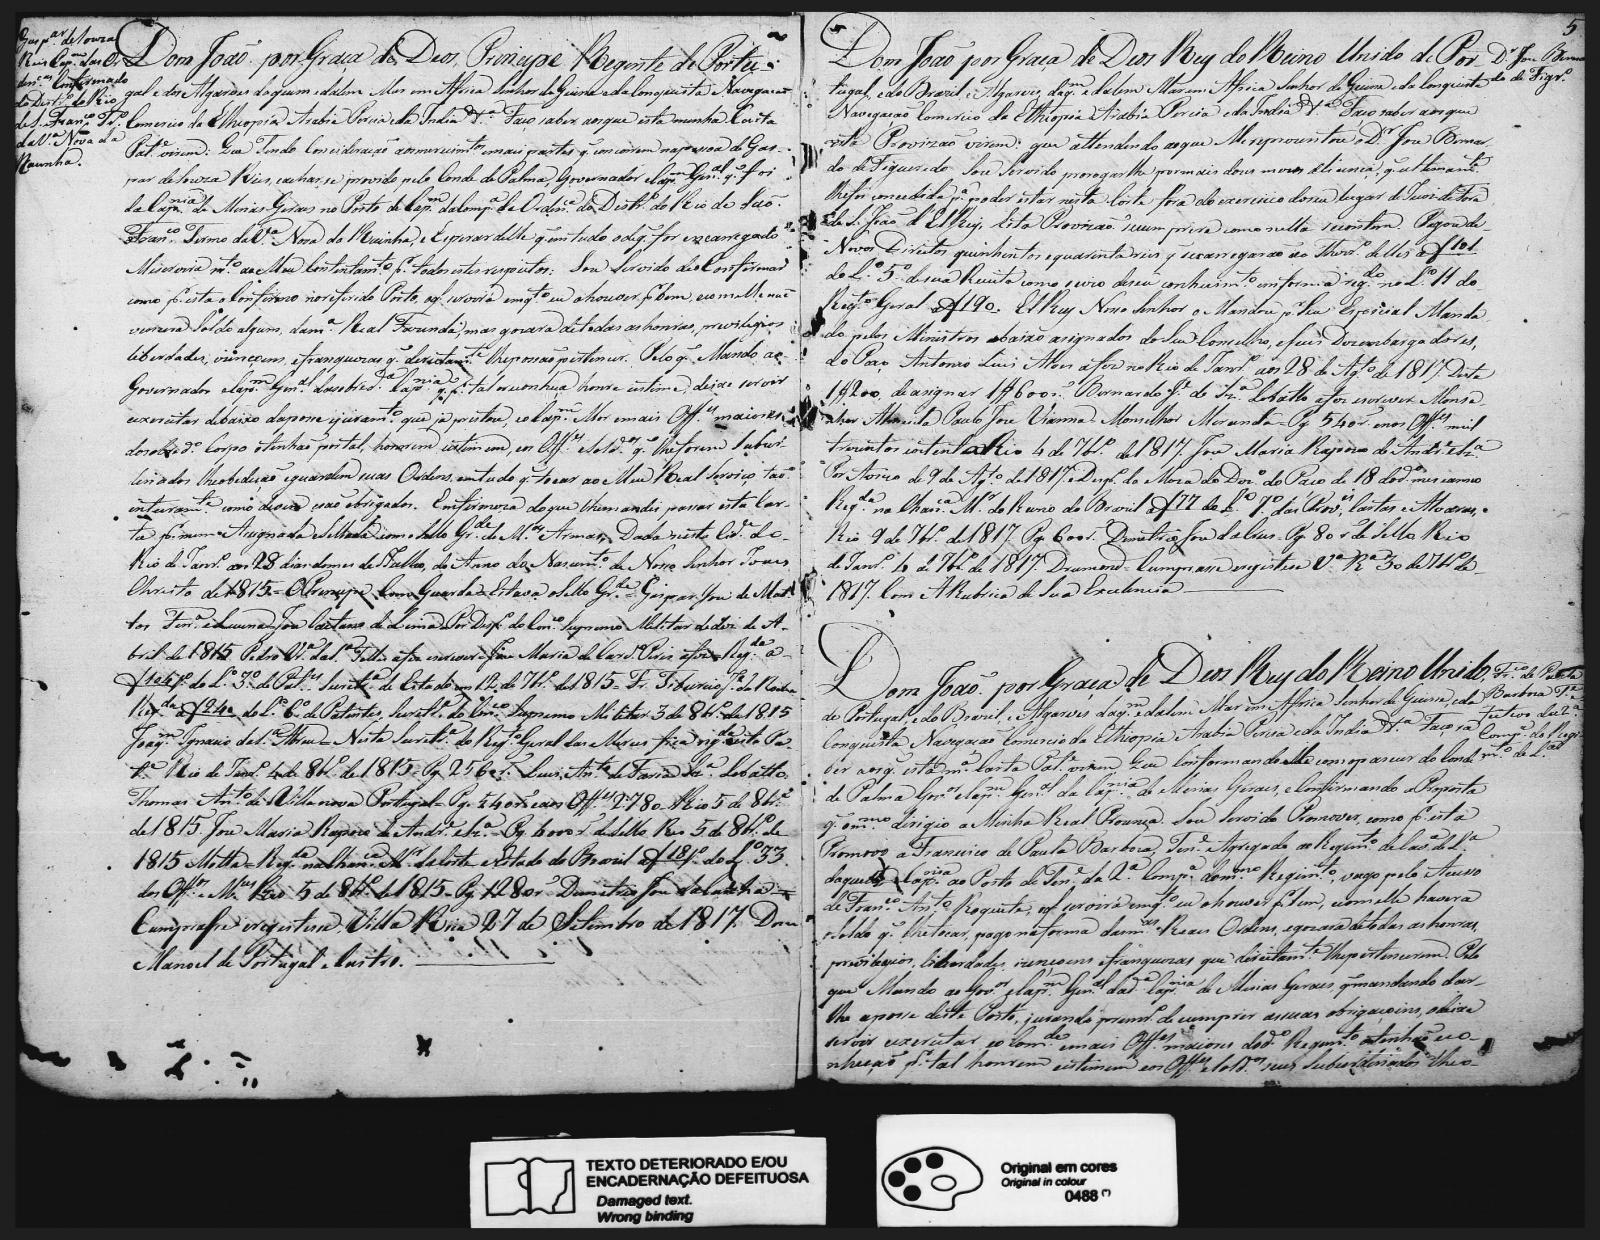 Gasp.ar de Souza
Reis Cap.m das Or
den.as Confirmado
do Destr.o do Rio
de S. Fran.co Tr.o
da V.a Nova da
Rainha.
Dom João por Graça de Deos, Principe Regente de Portu-
gal e dos Algarves daquem e dalem Mar em Africa Senhor de Guine e da Conquista Navegação
Comercio da Ethiopia Arabia Percia e da India &.a Faço saber aos que esta minha Carta
Pat.e virem: Que Tendo Concideração ao merecim.to e mais partes q. concorrem na pessoa de Gas-
par de Souza Reis, e achar-se provido pelo Conde de Palma, Governador e Cap.m Gen.al q. foi
da Cap.nia de Minas Geraes no Posto de Cap.m da Comp.a de Orden.ça do Destr.o do Rio de São
Fran.co Termo da V.a Nova da Rainha, e Esperar delle q. em tudo o de q. for encarregado
Me servira m.to ao Meu Contentam.to p.r todos estes respeitos: Sou Servido de o Confirmar
como p.r esta o Confirmo no referido Posto, o q. servirá emq.to eu o houver p.r bem, e com elle não
vencera Soldo algum, da m.a Real Fazenda, mas gozara de todas as honras, previlegios
liberdades, izençoens, e franquezas q. direitam.te lhe possão pertencer. Pelo q. Mando ao
Governador e Cap.m Gen.al da sobred.a Cap.nia q. p.r tal o reconheça honre e estime, deixe servir
e exercitar debaixo da posse e juram.to que ja prestou, e o Cap.m Mor e mais Off.es maiores
do sobred.o Corpo o tenhão por tal, honrem e estimem, e os Off.es e Sold.os q. lhe forem subor-
dinados lhe obedeção e guardem suas Ordens, em tudo q. tocar ao Meu Real Serviço, tão
inteiram.te como devem e são obrigados. Em firmeza do que lhe mandei passar esta Car-
ta p.r mim Asignada e Sellada com o Sello Gr.de de M.as Armas. Dada nesta Cid.e do
Rio de Jan.ro aos 28 dias do mes de Julho, do Anno do Nascim.to de Nosso Senhor Jesus
Christo de 1815 = O Principe Com Guarda = Estava o Sello Gr.de = Gaspar Jose de Mat-
tos Ferr.a e Lucena = Jose Caetano de Lima = Por Desp.o do Con.co Supremo Militar de dez de A-
bril de 1815 Pedro Vr.a da S.a Telles a fez escrever = Jose Maria de Carv.o Reis a fez = Reg.da a
f 101 v.o do L.o 3.o de Pat.es Secret.a de Estado em 12 de 7br.o de 1815. Fr. Tiburcio J.e da Rocha
Reg.da a f 24 do L.o 6.o de Patentes, Secret.a do Con.co Supremo Militar 3 de 8br.o de 1815
Joaq.m Ignacio de S.a Abreu = Nesta Secret.a do Reg.to Geral das Merces fica reg.da esta Pa-
t.e Rio de Jan.ro 4 de 8br.o de 1815 = Pg. 2560 r.s Luis Ant.o de Faria Sz.a Lobatto
Thomas Ant.o de Villanova Portugal = Pg. 540 r.s e aos Off.es 2780 = Rio 5 de 8br.o
de 1815. Jose Maria Raposo de Andr.e e Sz.a = Pg. 6000 r.s de Sello Rio 5 de 8br.o de
1815 Motta = Reg.da na Chan.ca Mr. da Corte e Estado do Brazil a f 181 v.o do L.o 33
dos Off.os e M.ces Rio 5 de 8br.o de 1815 = Pg. 1280 r.s Demetrio Jose da Cunha =
Cumpra se e registesse Villa Rica 27 de Setembro de 1817. Dom
Manoel de Portugal e Castro.
5
D.r Jose Bernar
do de Figr.o
Dom João por Graça de Deos Rey do Reino Unido de Por
tugal, e do Brazil, e Algarves, daq.m e dalem Mar em Africa Senhor de Guine e da Conquista
Navegação Comercio da Ethiopia Arabia Percia e da India &.a Faço saber aos que
esta Provizão virem: que attendendo ao que Me reprezentou o D.r Jose Bernar-
do de Figueredo Sou Servido prorogar lhe por mais dous mezes a licença, q. ultimam.te
lhe foi concedida p.a poder estar nesta Corte fora do exercicio do seu lugar de Juiz de Fora
de S. João d'El Rey. Esta Provizão se cumprira como nella se contem. Pagou de
Novos Direitos quinhentos e quarenta reis q. se carregarão ao Thezr.o delles a f 101
do L.o 5.o de sua Receita como se vio de seu conhecim.to em forma reg.do no L.o 11 do
Reg.to Geral a f 190. ElRey Nosso Senhor o Mandou p.r Seu Especial Manda
do pelos Ministros abaixo asignados do Seu Conselho, e seus Dezembargadores,
do Paço Antonio Luis Alves a fez no Rio de Jan.ro aos 28 de Ag.to de 1817. Desta
1$200, de asignar 1$600 r.s Bernardo J.e de Sz.a Lobatto a fez escrever Monse-
nhor Almeida Paulo Jose Vianna = Monselhor Miranda = Pg. 540 r. e nos Off.es mil
trezentos e oitenta Rio 4 de 7br.o de 1817. Jose Maria Raposo de Andr.e e Sz.a
Por Aviso de 9 de Ag.to de 1817, e Desp.o da Meza do Dez.o do Paço de 18 do d.o mes e anno
Reg.da na Chan.ca M.r do Reino do Brazil a f 77 do L.o 7.o das Prov.es Cartas e Alvaras,
Rio 9 de 7br.o de 1817. Pg. 600 r. Demetrio Jose da Cruz. Pg. 80 r. de Sello Rio
de Jan.ro 4 de 7br.o de 1817 Drumond = Cumprasse e registese V.a R.a 30 de 7br.o de
1817. Com A Rubrica de Sua Excelencia
Fr.co de Paula
Barboza T.e
Efectivo da 2.a
Comp.a do Regi
m.to de L.a
Dom João por Graça de Deos Rey do Reino Unido,
de Portugal, e do Brazil, e Algarves daq.m e dalem Mar em Africa Senhor de Guine, e da
Conquista Navegação Comercio da Ethiopia Arabia Percia e da India &.a Faço sa
ber aos q. esta m.a Carta Pat.e virem Que Conformando-Me com o parecer do Conde
de Palma Gov.or e Cap.m Gen.al da Cap.nia de Minas Geraes, e Confirmando a Proposta
q. o m.mo dirigio a Minha Real Prezença Sou Servido Promover, como p.r esta
Promovo a Francisco de Paula Barboza, Ten.e Agregado ao Regim.to de Cav.a de L.a
daquella Cap.nia ao Posto de Ten.e da 2.a Comp.a do m.mo Regim.to, vago pelo Acesso
de Fran.co Ant.o Roquete, o q. servira emq.to eu o houver p.r bem, e com elle havera
o Soldo q. lhe tocar, pago na forma das m.as Reaes Ordens, e gozara de todas as honras,
previlegios, liberdades, izençoens e franquezas que direitam.te lhe pertencerem. Pelo
que Mando ao Gov.or e Cap.m Gen.al da d.a Cap.nia de Minas Geraes, q. mandando dar-
lhe a posse deste Posto, jurando prim.ro de cumprir as suas obrigaçoins, o deixe
servir e exercitar, e o Com.de e mais Off.es maiores do d.o Regim.to o tenhão e co-
nheção p.r tal honrem e estimem e os Off.es e Sold.os seus Subordinados lhe o-
TEXTO DETERIORADO E/OU
ENCADERNAÇÃO DEFEITUOSA
Damaged text.
Wrong binding
Original em cores
Original in colour
0488 (*)